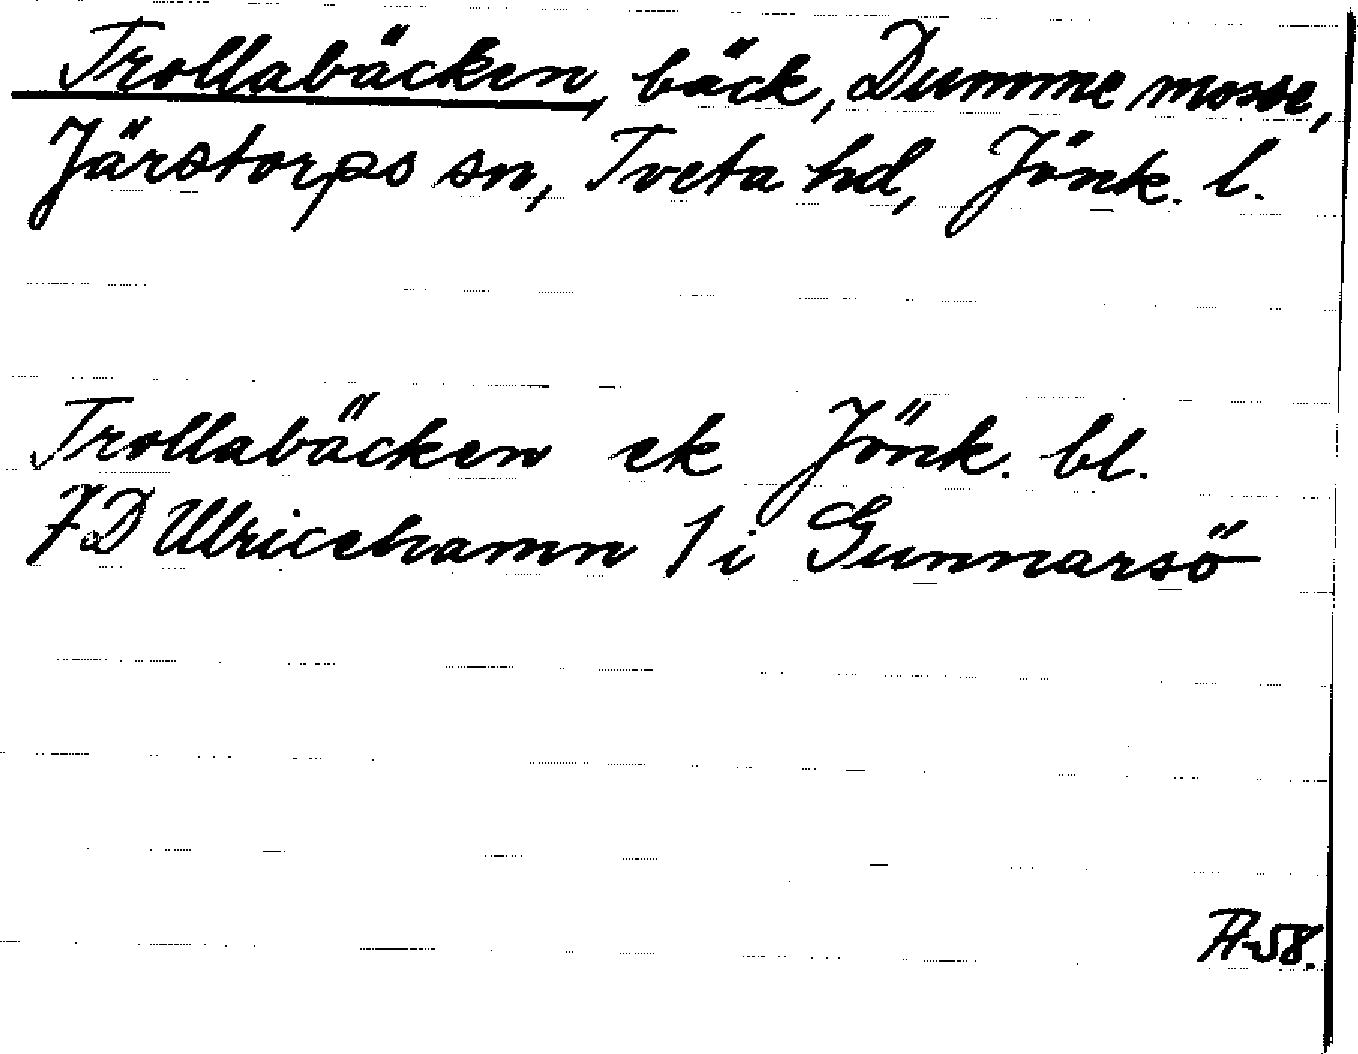 Trollabäcken, bäck, Dumme mosse,
Järstorps sn, Tveta hd, Jönk. l.
Trollabäcken ek Jönk. bl.
7D Ulricehamn 1 i Gunnarsö